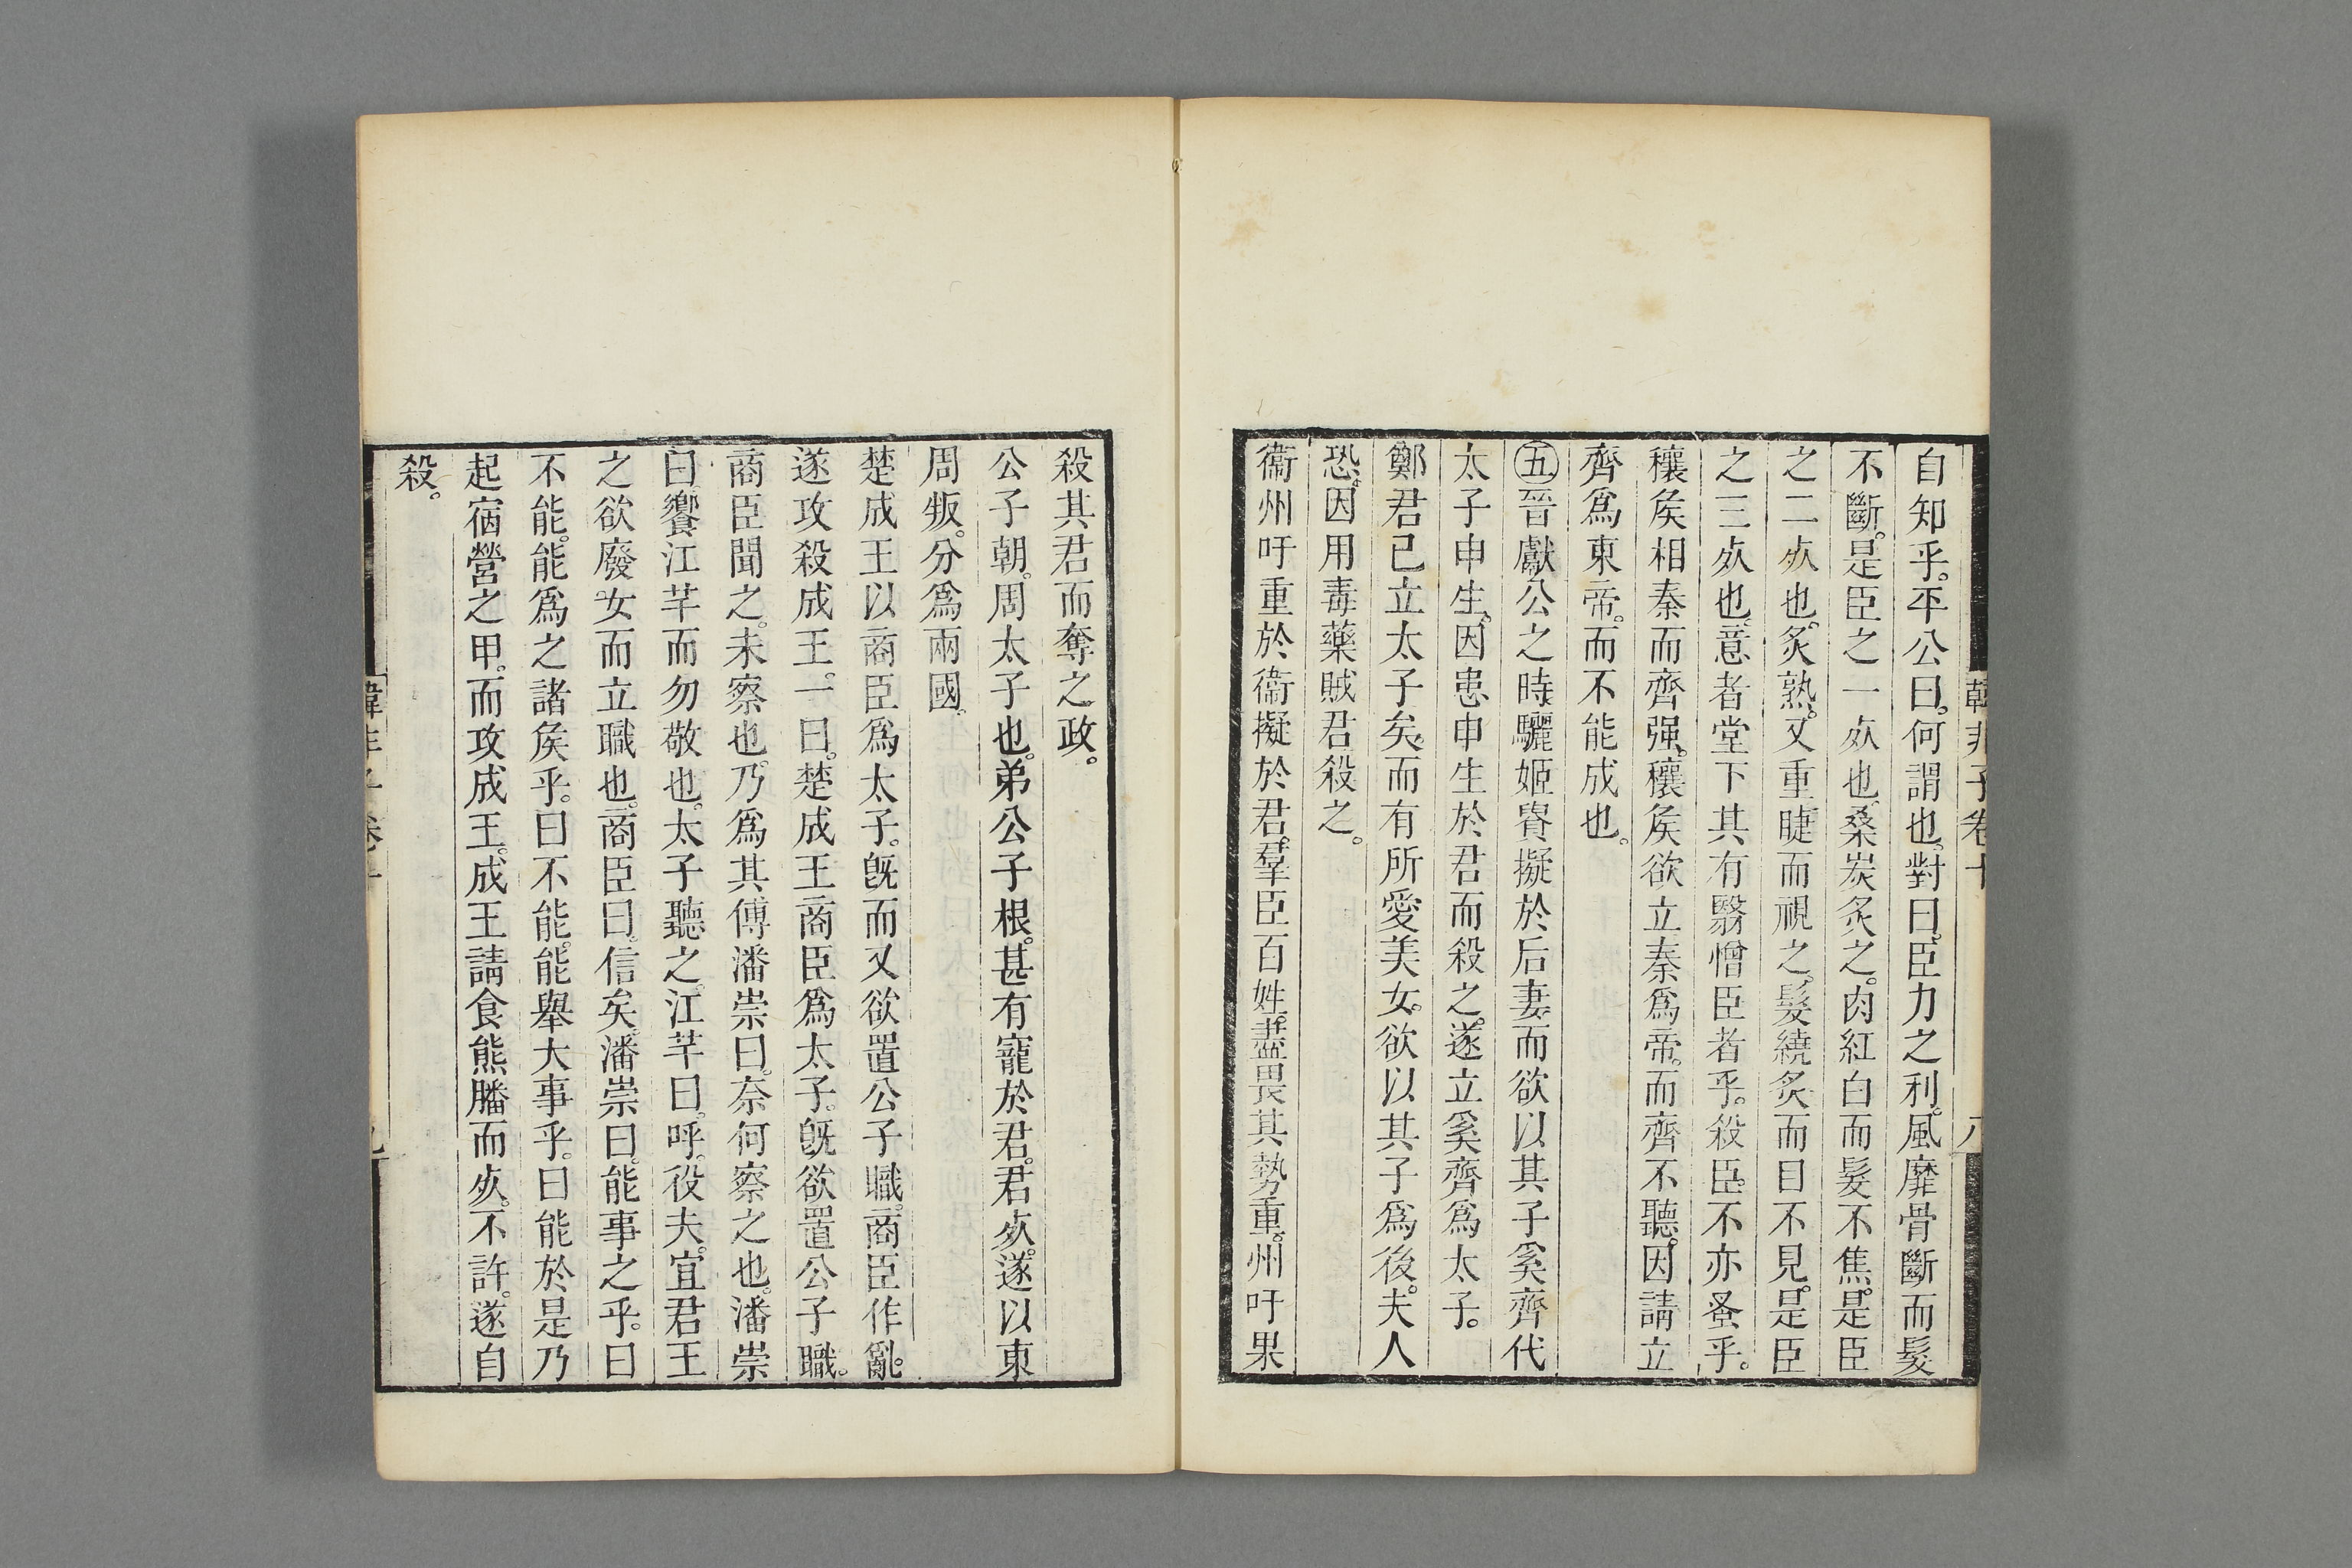 自知乎。平公曰。何謂也。對曰。臣力之利。風靡骨斷而髮
不斷。是臣之一㱙也。桑炭炙之。肉紅白而髮不焦。是臣
之二㱙也。炙熟。又重睫而視之。髮繞炙而目不見。是臣
之三㱙也。意者堂下其有翳憎臣者乎。殺臣。不亦蚤乎。
穰矦相秦而齊强。穰矦欲立秦爲帝。而齊不聽。因請立
齊爲東帝。而不能成也。
㊄晉獻公之時。驪姬貴。擬於后妻。而欲以其子奚齊代
太子申生。因患申生於君而殺之。遂立奚齊爲太子。
鄭君已立太子矣。而有所愛美女。欲以其子爲後。夫人
恐。因用毒藥賊君。殺之。
衞州吁重於衞。擬於君。羣臣百姓。盡畏其勢重。州吁果
韓非子卷十
八
殺其君而奪之政。
公子朝。周太子也。弟公子根。甚有寵於君。君㱙。遂以東
周叛。分爲兩國。
楚成王以商臣爲太子。旣而又欲置公子職。商臣作亂。
遂攻殺成王。一曰。楚成王商臣爲太子。旣欲置公子職。
商臣聞之。未察也。乃爲其傅潘崇曰。奈何察之也。潘崇
曰。饗江芊而勿敬也。太子聽之。江芊曰。呼。役夫。宜君王
之欲廢女而立職也。商臣曰。信矣。潘崇曰。能事之乎。曰
不能。能爲之諸矦乎。曰不能。能舉大事乎。曰能。於是乃
起宿營之甲。而攻成王。成王請食熊膰而㱙。不許。遂自
殺。